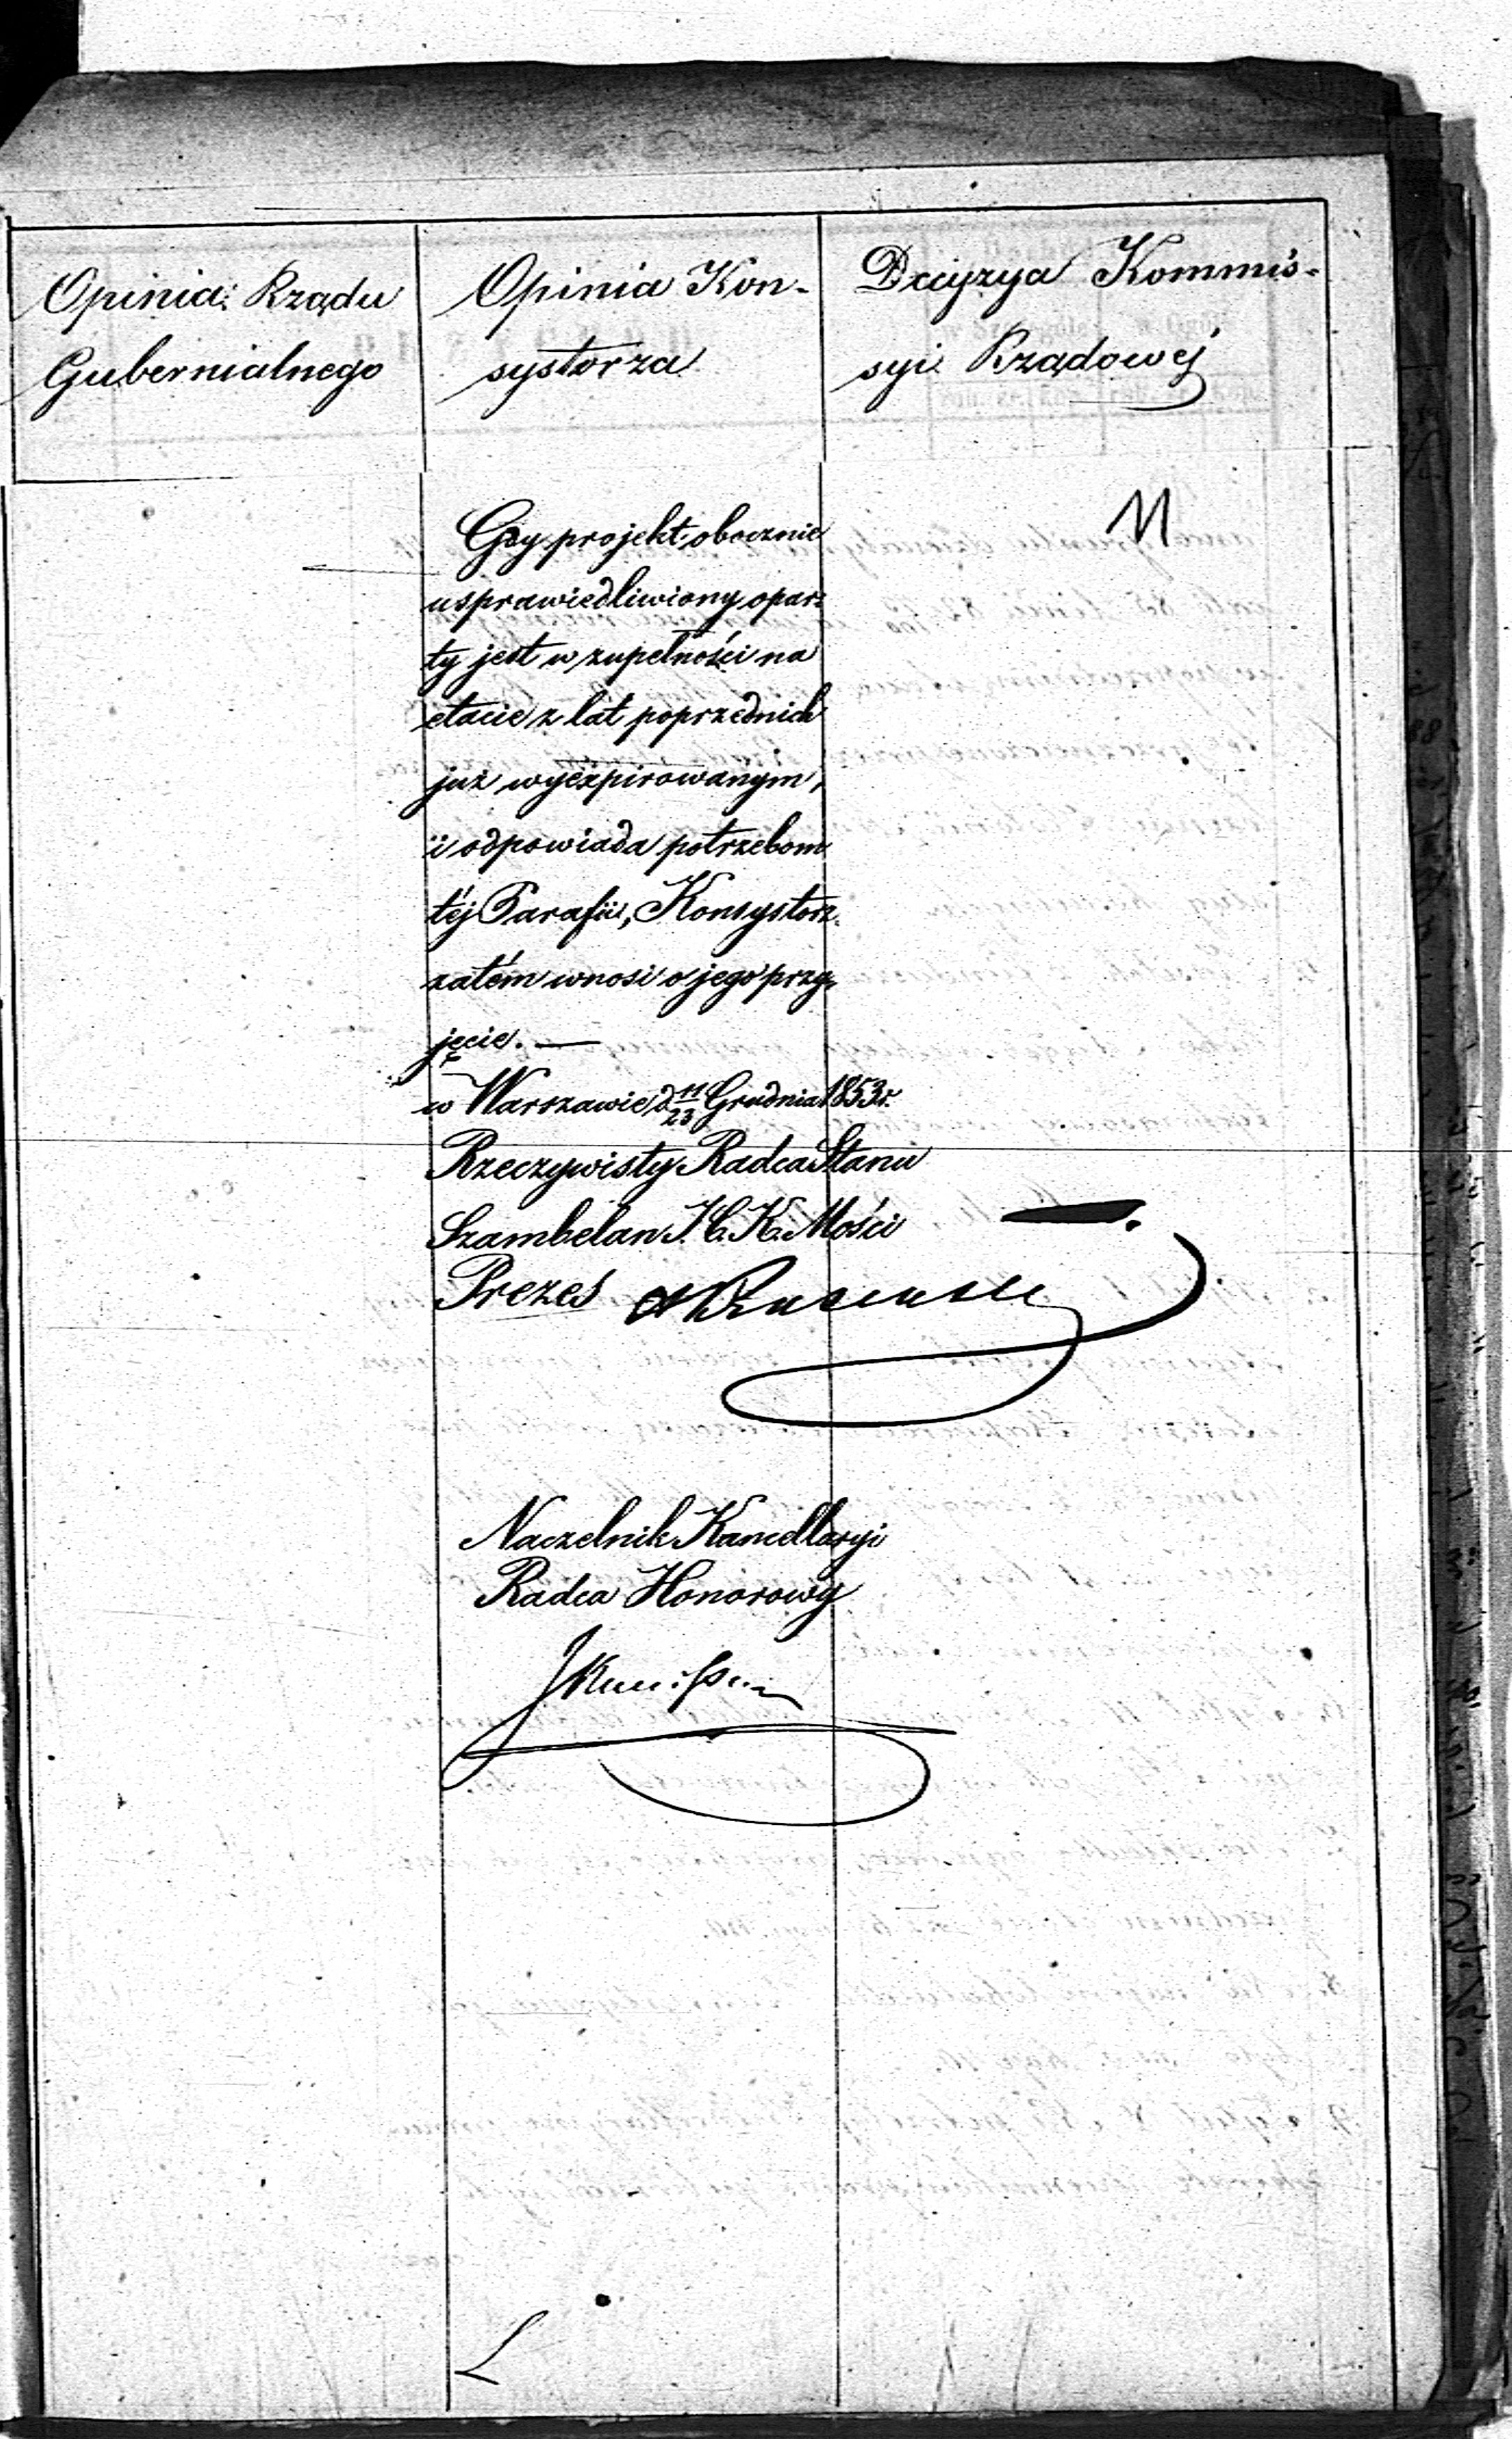 Opinia Rządu
Gubernialnego
Opinia Kon-
systorza
Decyzya Kommis-
syi Rządowéj
Gdy projekt obocznie
usprawiedliwiony opar-
ty jest w zupełności na
etacie z lat poprzednich
już wyexpirowanym,
i odpowiada potrzebom
téj Parafii, Konsystorz
zatém wnosi o jego przy-
jęcie. —
w Warszawie d 11/23 Grudnia 1853 r.
Rzeczywisty Radca Stanu
Szambelan J. C. K. Mości
Prezes
Naczelnik Kancellaryi
Radca Honorowy